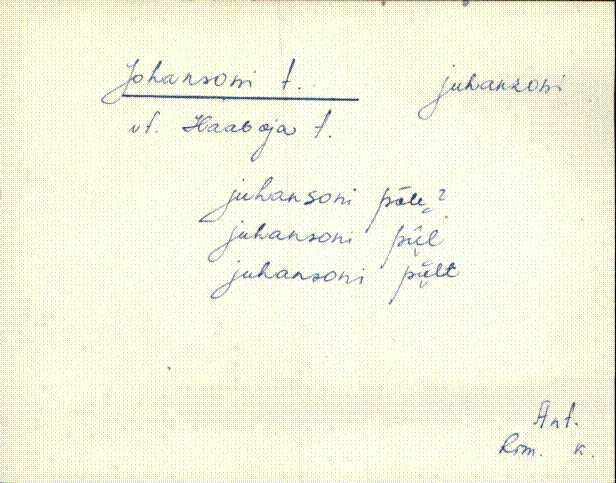 Johansoni t. juhansoni
vt. Haaboja t.
juhansoni põle?
juhansoni pǖl
juhansoni pǖlt
Ant.
Rom. k.